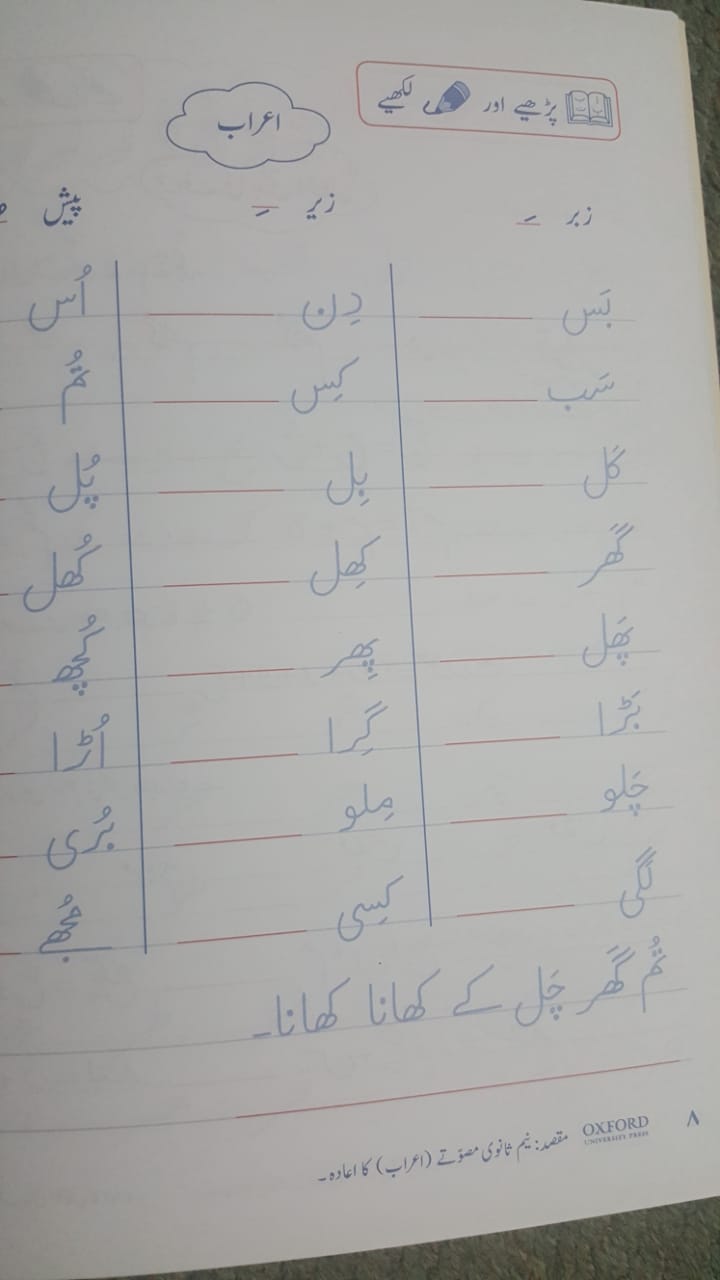 پڑھیے اور لکھیے
اعراب
زبر ـَ زیر ـِ پیش
بَس دِن اُس
سَب کِس تُم
کَل بِل پُل
گَھر کِھل کُھل
پَھل پِھر کُچھ
بَڑا گِرا اُڑا
چَلو مِلو بُری
لَگی کِسی
تُم گَھر چَل کے کھانا کھانا۔
مقصد: نیم ثانوی مصوّتے (اعراب) کا اعادہ۔ OXFORD UNIVERSITY PRESS ۸